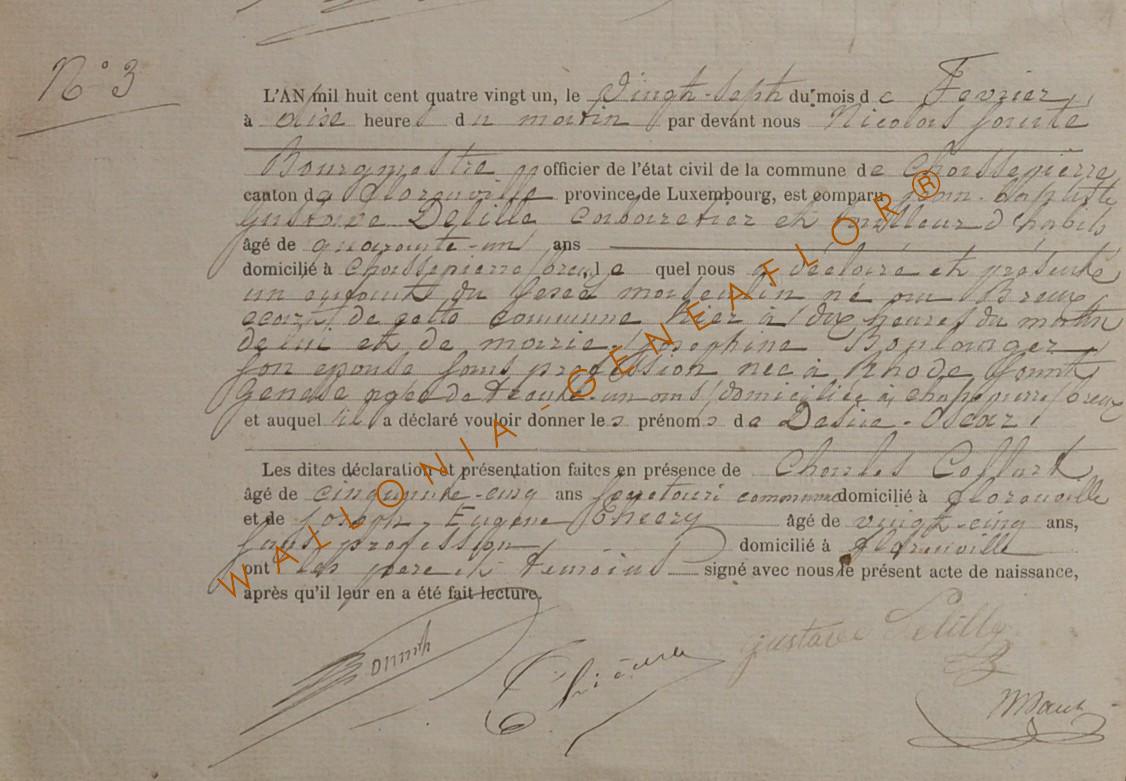 N° 3
L'AN mil huit cent quatre vingt un, le Vingt-Sept du mois de Fevrier,
à onse heures du matin par devant nous Nicolas
Bourgmestre officier de l'état civil de la commune de Chassepierre
canton de Florenville province de Luxembourg, est comparu Jean-Baptiste
Gustave Delille cabaretier et tailleur d'habits
âgé de quarante-un ans
domicilié à Chassepierre Breux, le quel nous a déclaré et présenté
un enfant du Sexe masculin né au Breux
ecart de cette commune hier à dix heures du matin
de lui et de marie-Josephine Boulanger
son epouse sans profession née à Rhode Saint
genese agée de trente-un ans domiciliée à chassepierre Breux
et auquel il a déclaré vouloir donner les prénoms de Desire-Oscar,
Les dites déclaration et présentation faites en présence de Charles Collard
âgé de cinquante-cinq ans communal domicilié à florenville
et de Joseph-Eugène Thiery âgé de vingt-cinq ans,
sans profession domicilié à florenville
ont les père et temoins signé avec nous le présent acte de naissance,
après qu'il leur en a été fait lecture.
gustave Delille
WALLONIA-GENEAFLOR®